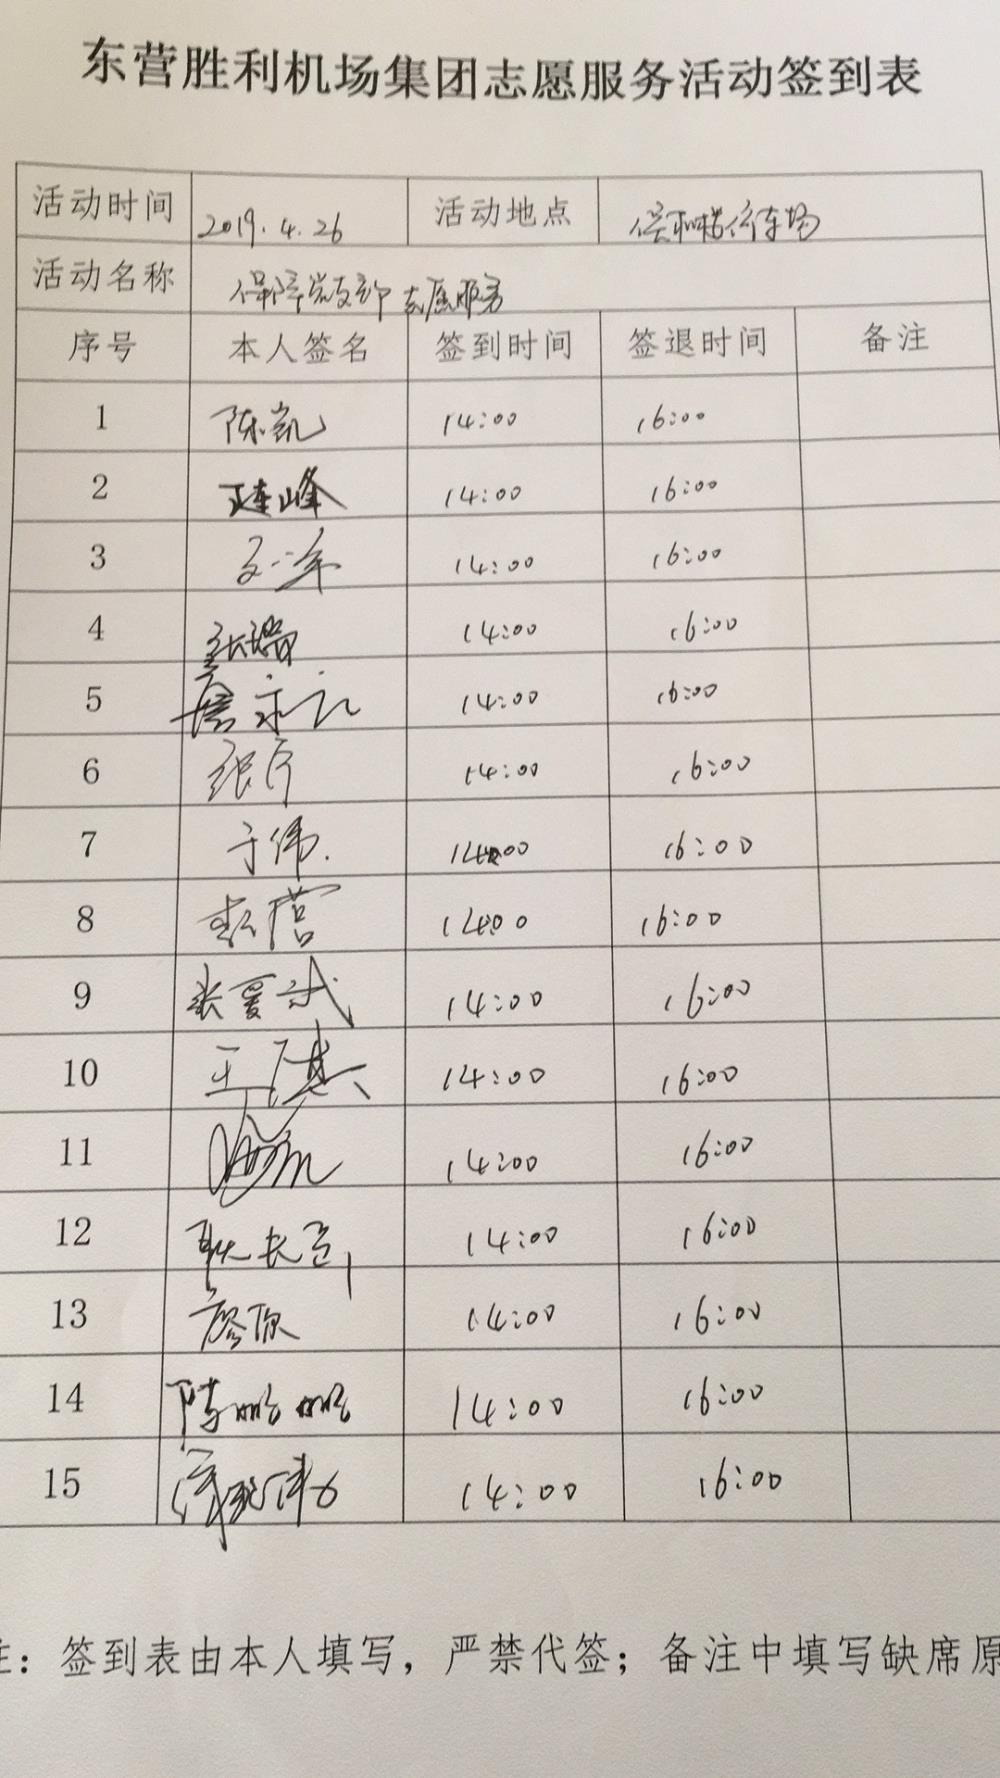 东营胜利机场集团志愿服务活动签到表
活动时间 2019.4.26 活动地点 停车场
活动名称 保障党支部志愿服务
序号 本人签名 签到时间 签退时间 备注
1 陈凯 14:00 16:00
2 王连峰 14:00 16:00
3 14:00 16:00
4 张瑞 14:00 16:00
5 14:00 16:00
6 14:00 16:00
7 于伟. 14:00 16:00
8 14:00 16:00
9 张夏斌 14:00 16:00
10 14:00 16:00
11 14:00 16:00
12 耿长 14:00 16:00
13 廖 14:00 16:00
14 陈鹏鹏 14:00 16:00
15 14:00 16:00
注：签到表由本人填写，严禁代签；备注中填写缺席原